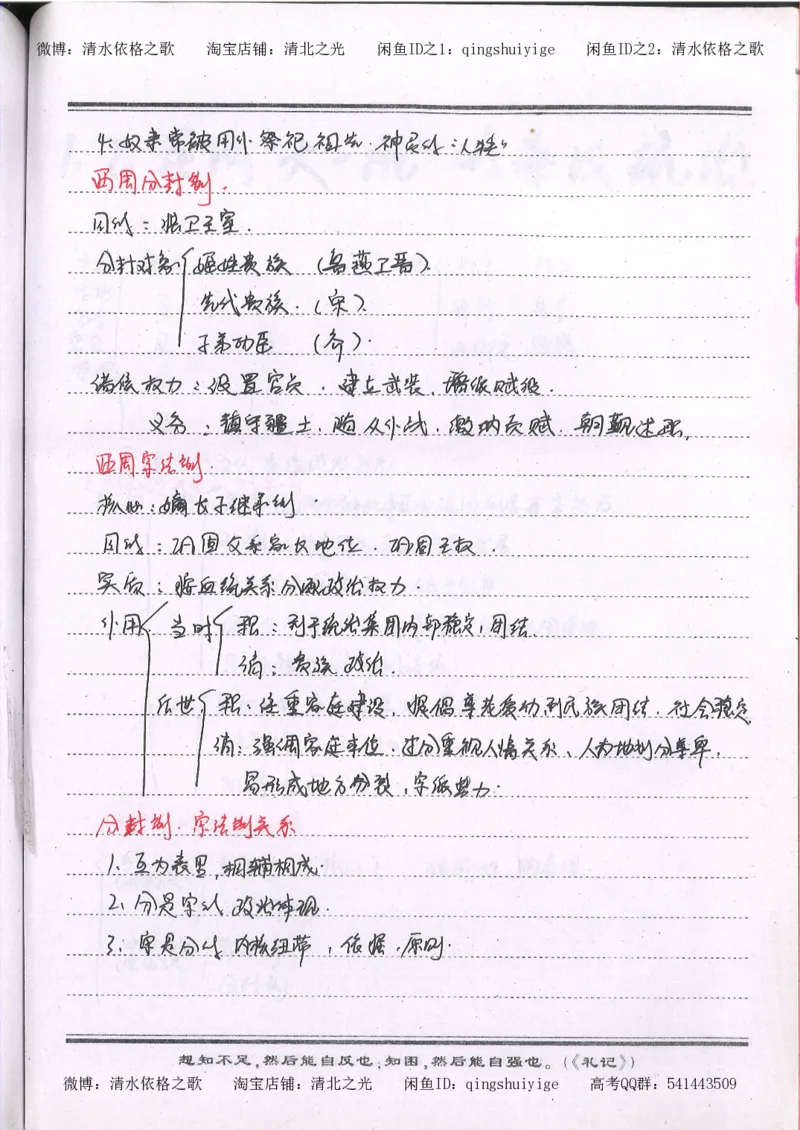 微博：清水依格之歌 淘宝店铺：清北之光 闲鱼ID之1：qingshuiyige 闲鱼ID之2：清水依格之歌
4. 奴隶常被用作祭祀祖先、神灵的"人牲"
西周分封制.
目的：拱卫王室.
分封对象 姬姓贵族 (鲁燕卫晋).
先代贵族.(宋).
子弟功臣 (齐).
诸侯权力：设置官员，建立武装，征派赋役.
义务：镇守疆土，随从作战，缴纳贡赋 朝觐述职.
西周宗法制.
核心：嫡长子继承制.
目的：巩固父系家长地位，巩固王权.
实质：将血缘关系分配政治权力.
作用 当时 积：利于统治集团内部稳定，团结.
消：贵族政治.
后世 积：注重家庭建设，提倡尊老爱幼利民族团结，社会稳定.
消：强调家庭本位，过分重视人情关系、人为地划分尊卑，
易形成地方分裂，宗派势力.
分封制、宗法制关系
1. 互为表里，相辅相成.
2. 分是宗的 政治体现.
3. 宗是分的 内核纽带，依据，原则.
想知不足，然后能自反也；知困，然后能自强也。(《礼记》)
微博：清水依格之歌 淘宝店铺：清北之光 闲鱼ID：qingshuiyige 高考QQ群：541443509